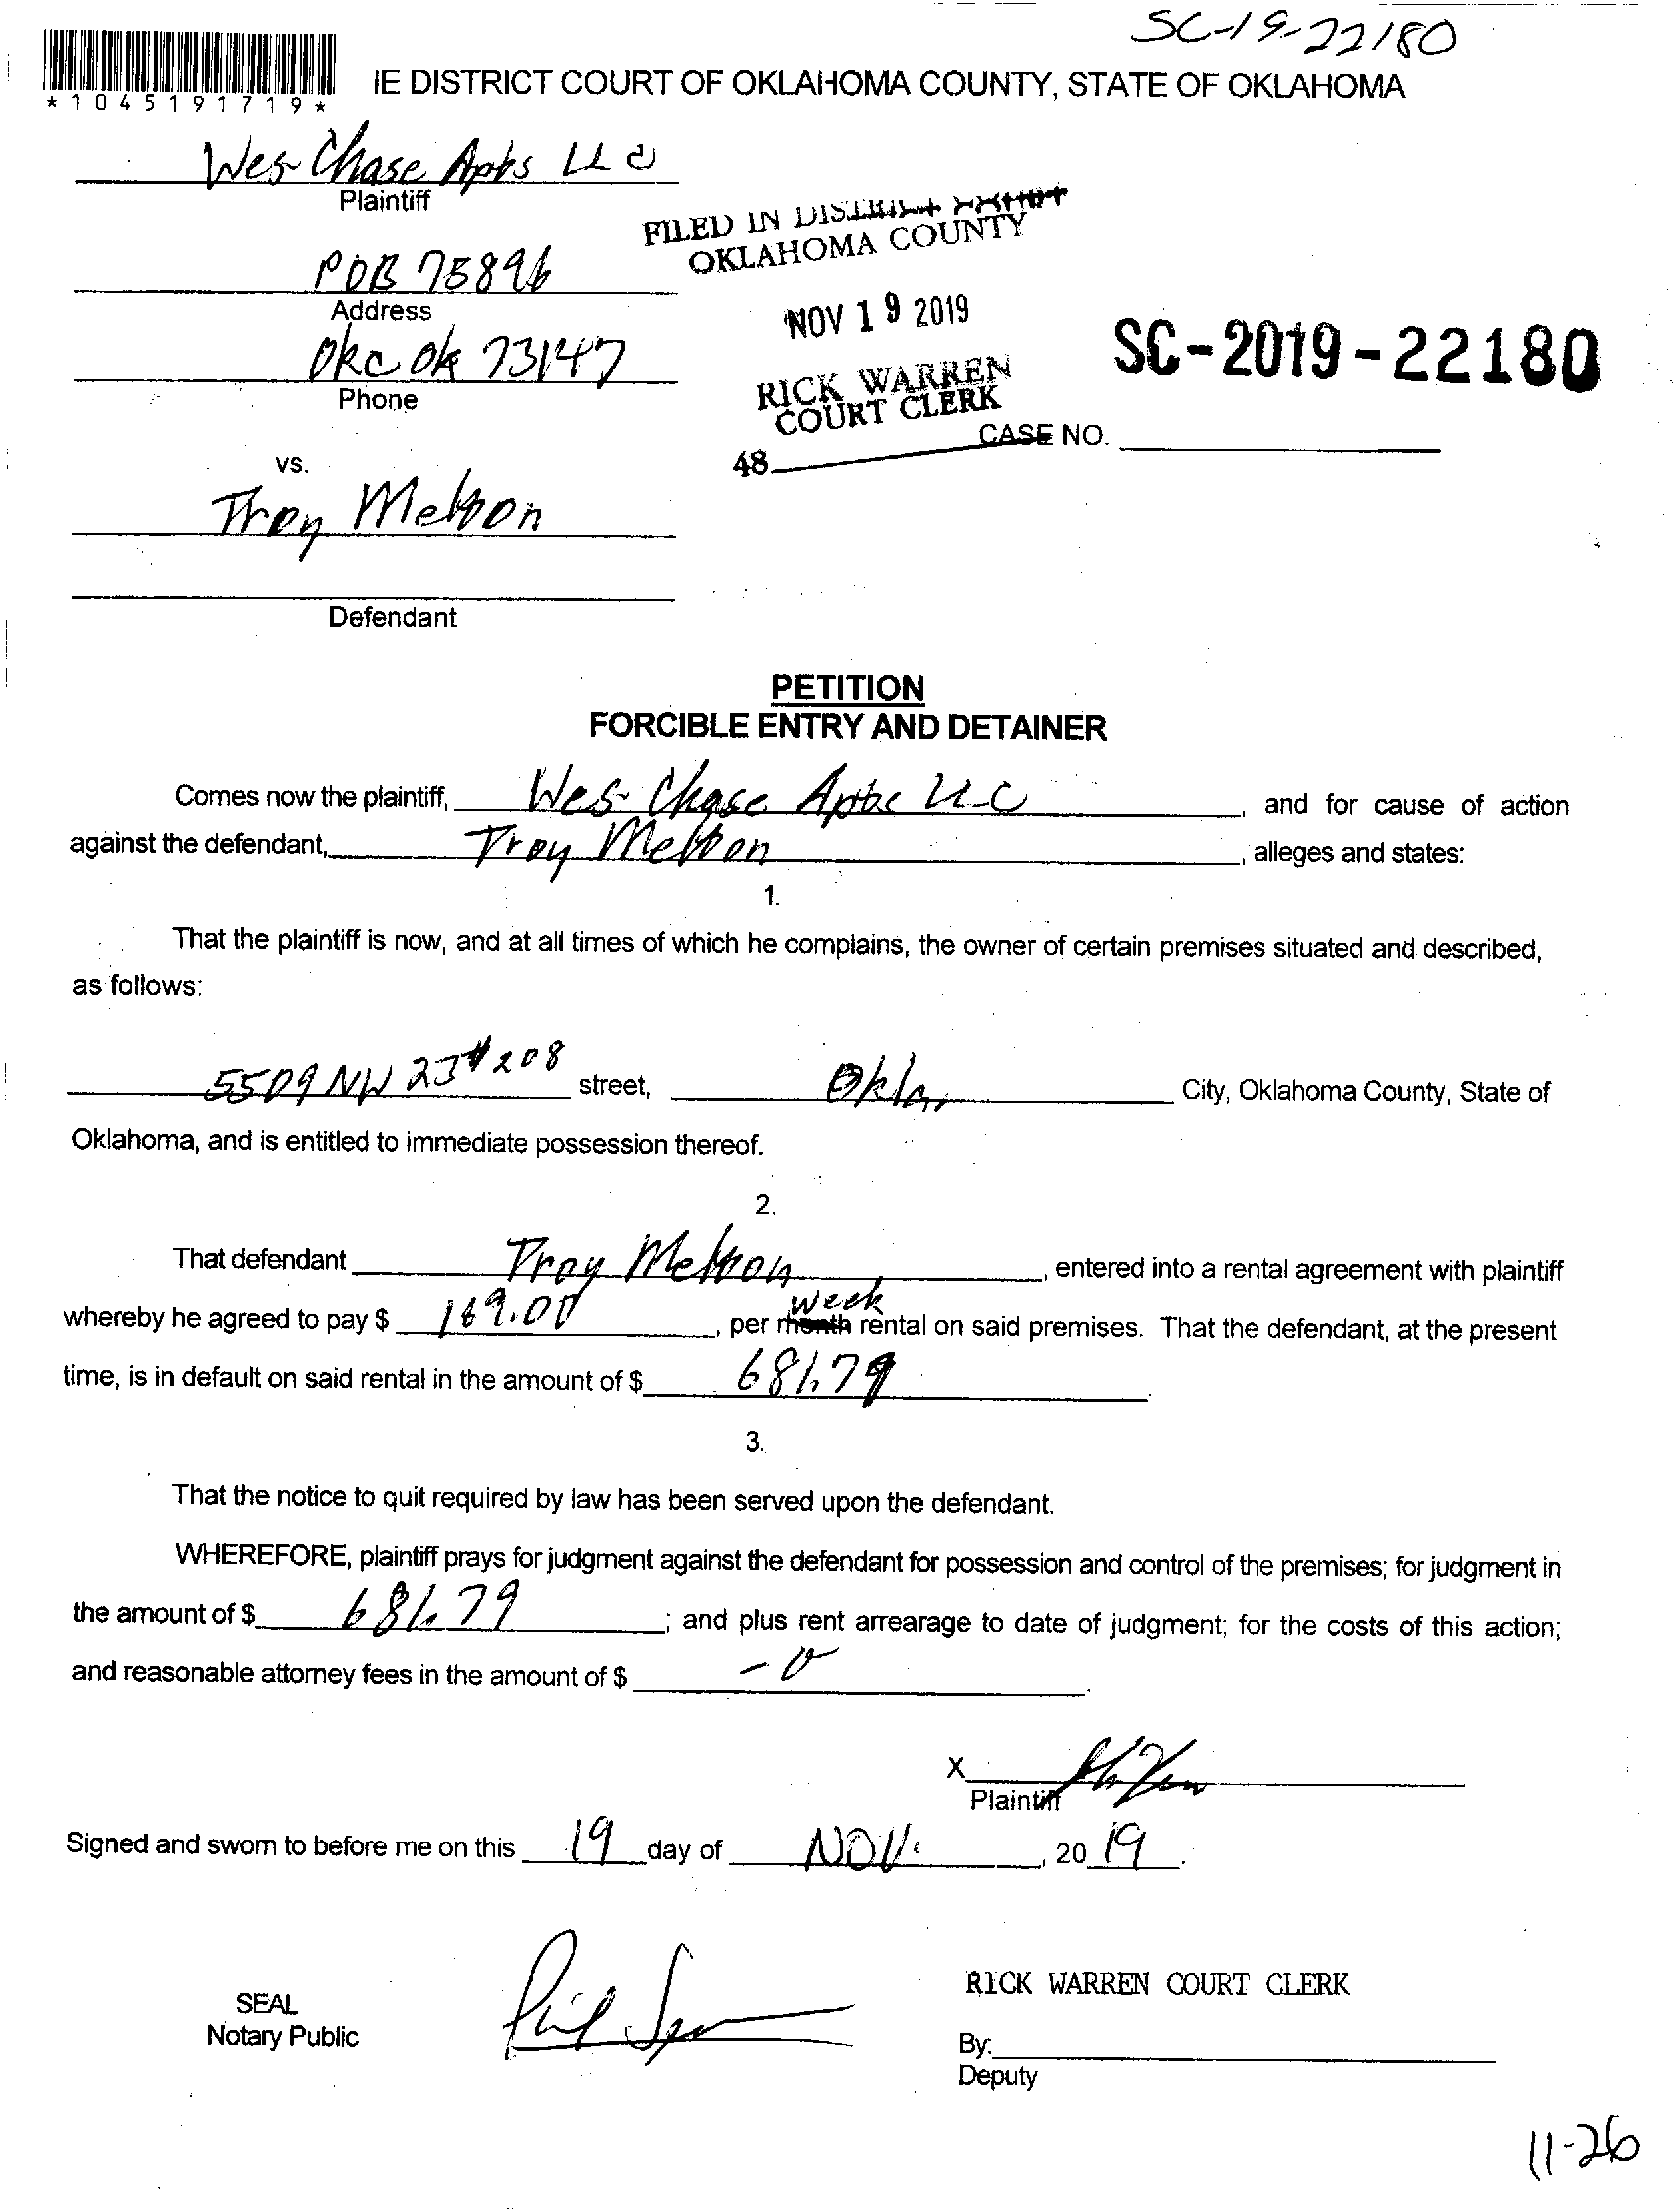 SC-19-22180
*1045191719*
IE DISTRICT COURT OF OKLAHOMA COUNTY, STATE OF OKLAHOMA
Wes Chase Apts LLC
Plaintiff
FILED IN DISTRICT COURT
OKLAHOMA COUNTY
POB 75896
Address
NOV 19 2019
OKC OK 73147
Phone
SC-2019-22180
RICK WARREN
COURT CLERK
CASE NO.
48
vs.
Troy Melton
Defendant
PETITION
FORCIBLE ENTRY AND DETAINER
Comes now the plaintiff, Wes Chase Apts LLC, and for cause of action
against the defendant, Troy Melton, alleges and states:
1.
That the plaintiff is now, and at all times of which he complains, the owner of certain premises situated and described,
as follows:
5509 NW 23 #208 street, Okla, City, Oklahoma County, State of
Oklahoma, and is entitled to immediate possession thereof.
2.
That defendant Troy Melton, entered into a rental agreement with plaintiff
week
whereby he agreed to pay $ 169.00, per month rental on said premises. That the defendant, at the present
time, is in default on said rental in the amount of $ 681.79.
3.
That the notice to quit required by law has been served upon the defendant.
WHEREFORE, plaintiff prays for judgment against the defendant for possession and control of the premises; for judgment in
the amount of $ 681.79; and plus rent arrearage to date of judgment; for the costs of this action;
and reasonable attorney fees in the amount of $ -0.
X
Plaintiff
Signed and sworn to before me on this 19 day of NOV., 20 19.
RICK WARREN COURT CLERK
SEAL
Notary Public
By:
Deputy
11-26